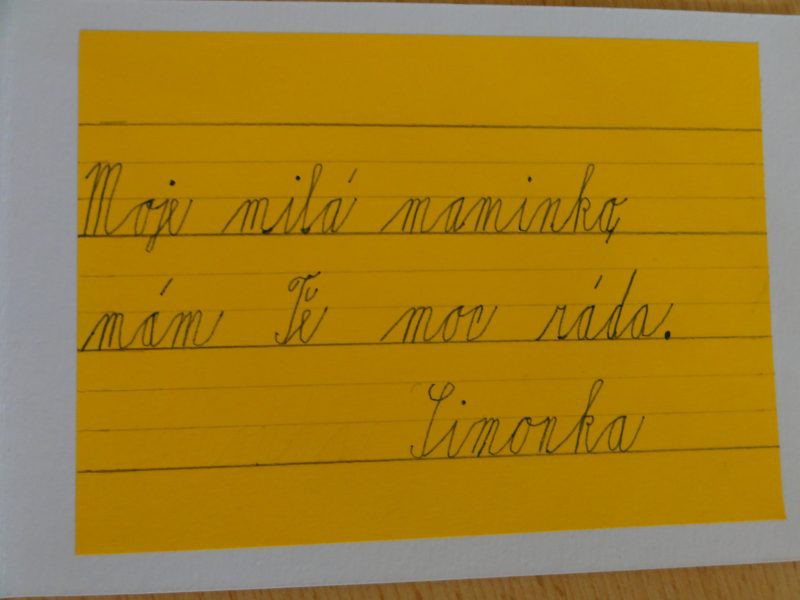 Moje milá maminko,
mám Tě moc ráda.
Simonka